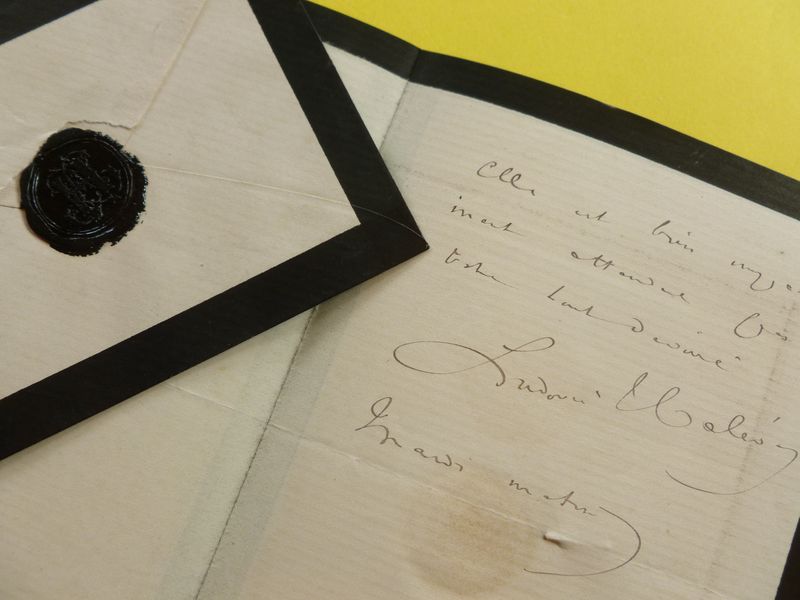 Elle est bien
ment attendue
votre tout dévoué
Ludovic Halévy
Mardi matin